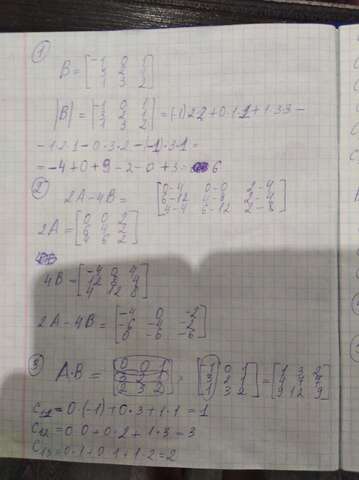 1
B = [-1 0 1
3 2 1
1 3 2]
|B| = [-1 0 1
3 2 1
1 3 2] = (-1)·2·2 + 0·1·1 + 1·3·3 -
- 1·2·1 - 0·3·2 - (-1)·3·1 =
= -4 + 0 + 9 - 2 - 0 + 3 = 6
2
2A - 4B = [0-4 0-0 2-4
6-12 4-8 2-4
4-4 6-12 2-8]
2A = [0 0 2
6 4 2
4 6 2]
4B - [-4 0 4
12 8 4
4 12 8]
2A - 4B = [-4 0 -2
-6 -4 -2
0 -6 -6]
3
A·B = [0 0 1
3 2 1
2 3 2] · [-1 0 1
3 2 1
1 3 2] = [1 3 2
4 7 7
9 12 9]
= 0·(-1) + 0·3 + 1·1 = 1
C12 = 0·0 + 0·2 + 1·3 = 3
C13 = 0·1 + 0·1 + 1·2 = 2